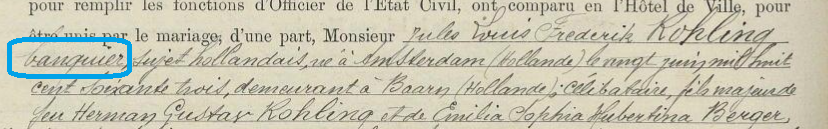 pour remplir les fonctions d'Officier de l'État Civil, ont comparu en l'Hôtel de Ville, pour
être unis par le mariage, d'une part, Monsieur Jules Louis Frederik Kohling
banquier, sujet hollandais, né à Amsterdam (Hollande) le vingt juin mil huit
cent soixante trois, demeurant à Baarn (Hollande); célibataire, fils majeur de
feu Herman Gustav Kohling et de Emilia Sophia Hubertina Berger,